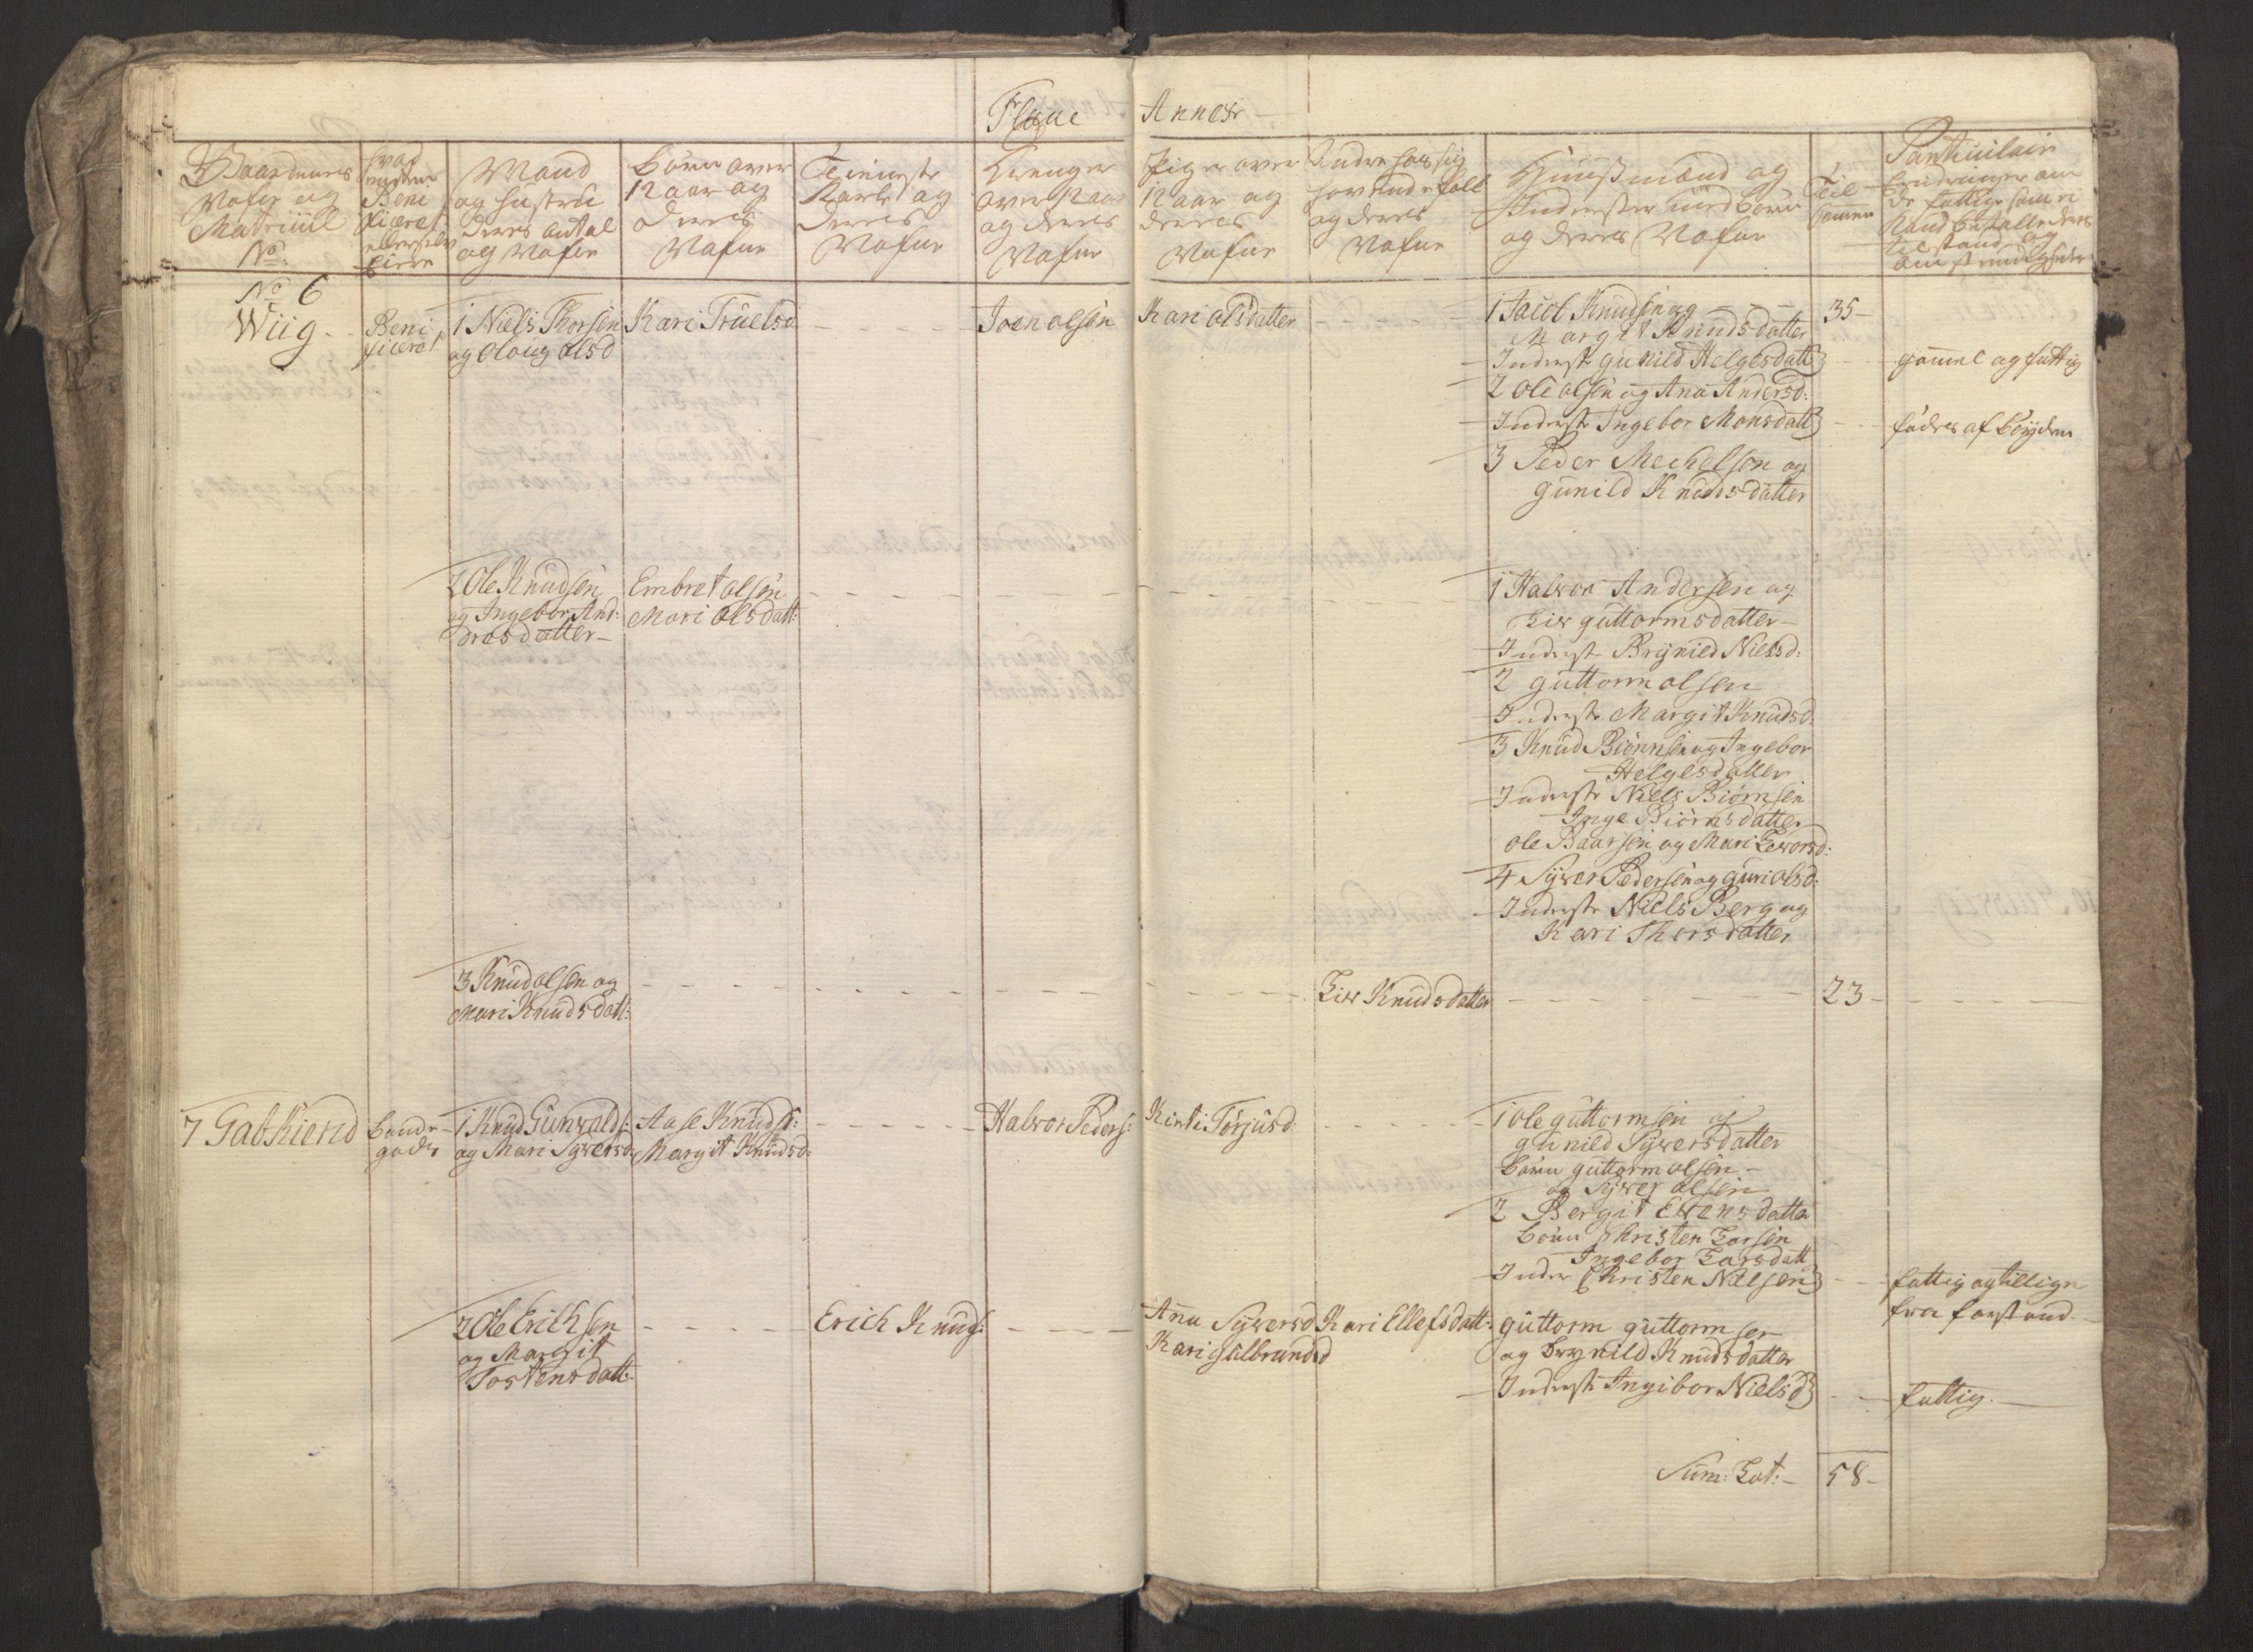 Flaae Annex
Gaardenes Nafn og Matricul No:
hvad enten Beneficeret eller selv Eiere
Mand og Hustru deres Antal og Nafn
Børn over 12 aar og deres Nafne
Tieniste Karle og deres Nafne
Drenger over 12 aar og deres Nafne
Piger over 12 aar og deres Nafne
Andre hos sig havende folk og deres Nafne
Huusmænd og Inderster med børn og deres Nafne
Til sammen
No 6
Wiig
Beneficeret
1 Niels Thorsen
og Oloug Olsd
Kari Truelsd
Joen olsen
Kari olsdatter
1 Jacob Knudsen og
Margit Knudsdatter
35
Inderste Gunild Helgesdatt
gammel og fattig
2 Ole olsen og Ana Andersd:
Inderste Ingebor Monsdatt
fødes af bøyden
3 Peder Mechelsen og
Gunild Knudsdatter
2 Ole Knudsen
og Ingebor And:
dresdatter
Embret olsen
Mari Olsdatt:
1 Halvor Andersen og
Liv guttormsdatter
Inderste Brynild Nielsd:
2 guttorm olsen
Inderste Margit Knudsd:
3 Knud Biønnsen og Ingebor
Helgesdatter
Inderste Niels Biørnsen
Inge Biørnsdatter
Ole Baarsen og Mari Levorsd:
4 Syver Pedersen og Guri olsd:
Inderste Niels Berg og
Kari Thorsdatter
3 Knud olsen og
Mari Knudsdatt:
Liv Knudsdatter
23
7 Gatkiend
Bonde
gods
1 Knud Gunvalds:
og Mari Syversd:
Aase Knudsd:
Margit Knudsd:
Halvor Peders:
Kirsti Torjusd:
1 Ole guttormsen og
gunild Syversdatter
børn guttorm olsen
og Syver olsen
2 Bergit Evensdatter
børn Christen Larsen
Ingebor Larsdatt
Inder Christen Nielsen
fattig og tillige
fra forstand
2 Ole Erichsen
og Margit
Tostensdatt:
Erich Knuds:
Anna Syversd
Kari gulbrandsd
Kari Ellefsdatt:
guttorm guttormsen
og brynild Knudsdatter
Inderste Ingibor Nielsd
fattig.
Sum: Lat:
58